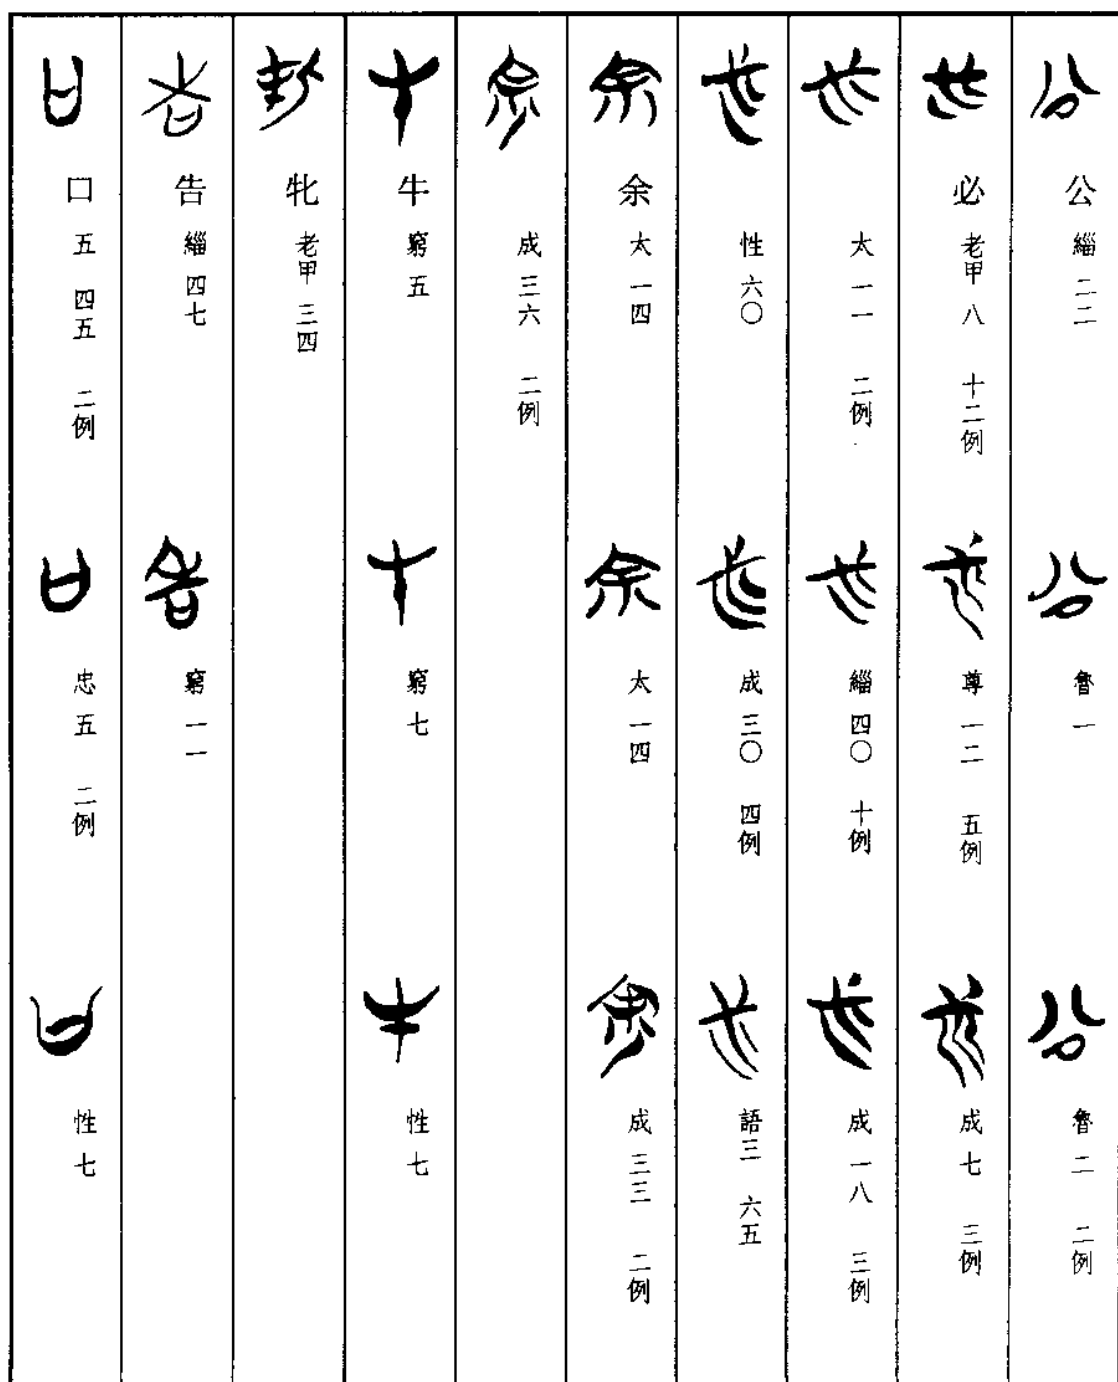 公 緇 二二
魯 一
魯 二 二例
必 老甲 八 十二例
尊 一二 五例
成 七 三例
太 一一 二例
緇 四〇 十例
成 一八 三例
性 六〇
成 三〇 四例
語三 六五
余 太 一四
太 一四
成 三三 二例
成 三六 二例
牛 窮 五
窮 七
性 七
牝 老甲 三四
告 緇 四七
窮 一一
口 五 四五 二例
忠 五 二例
性 七